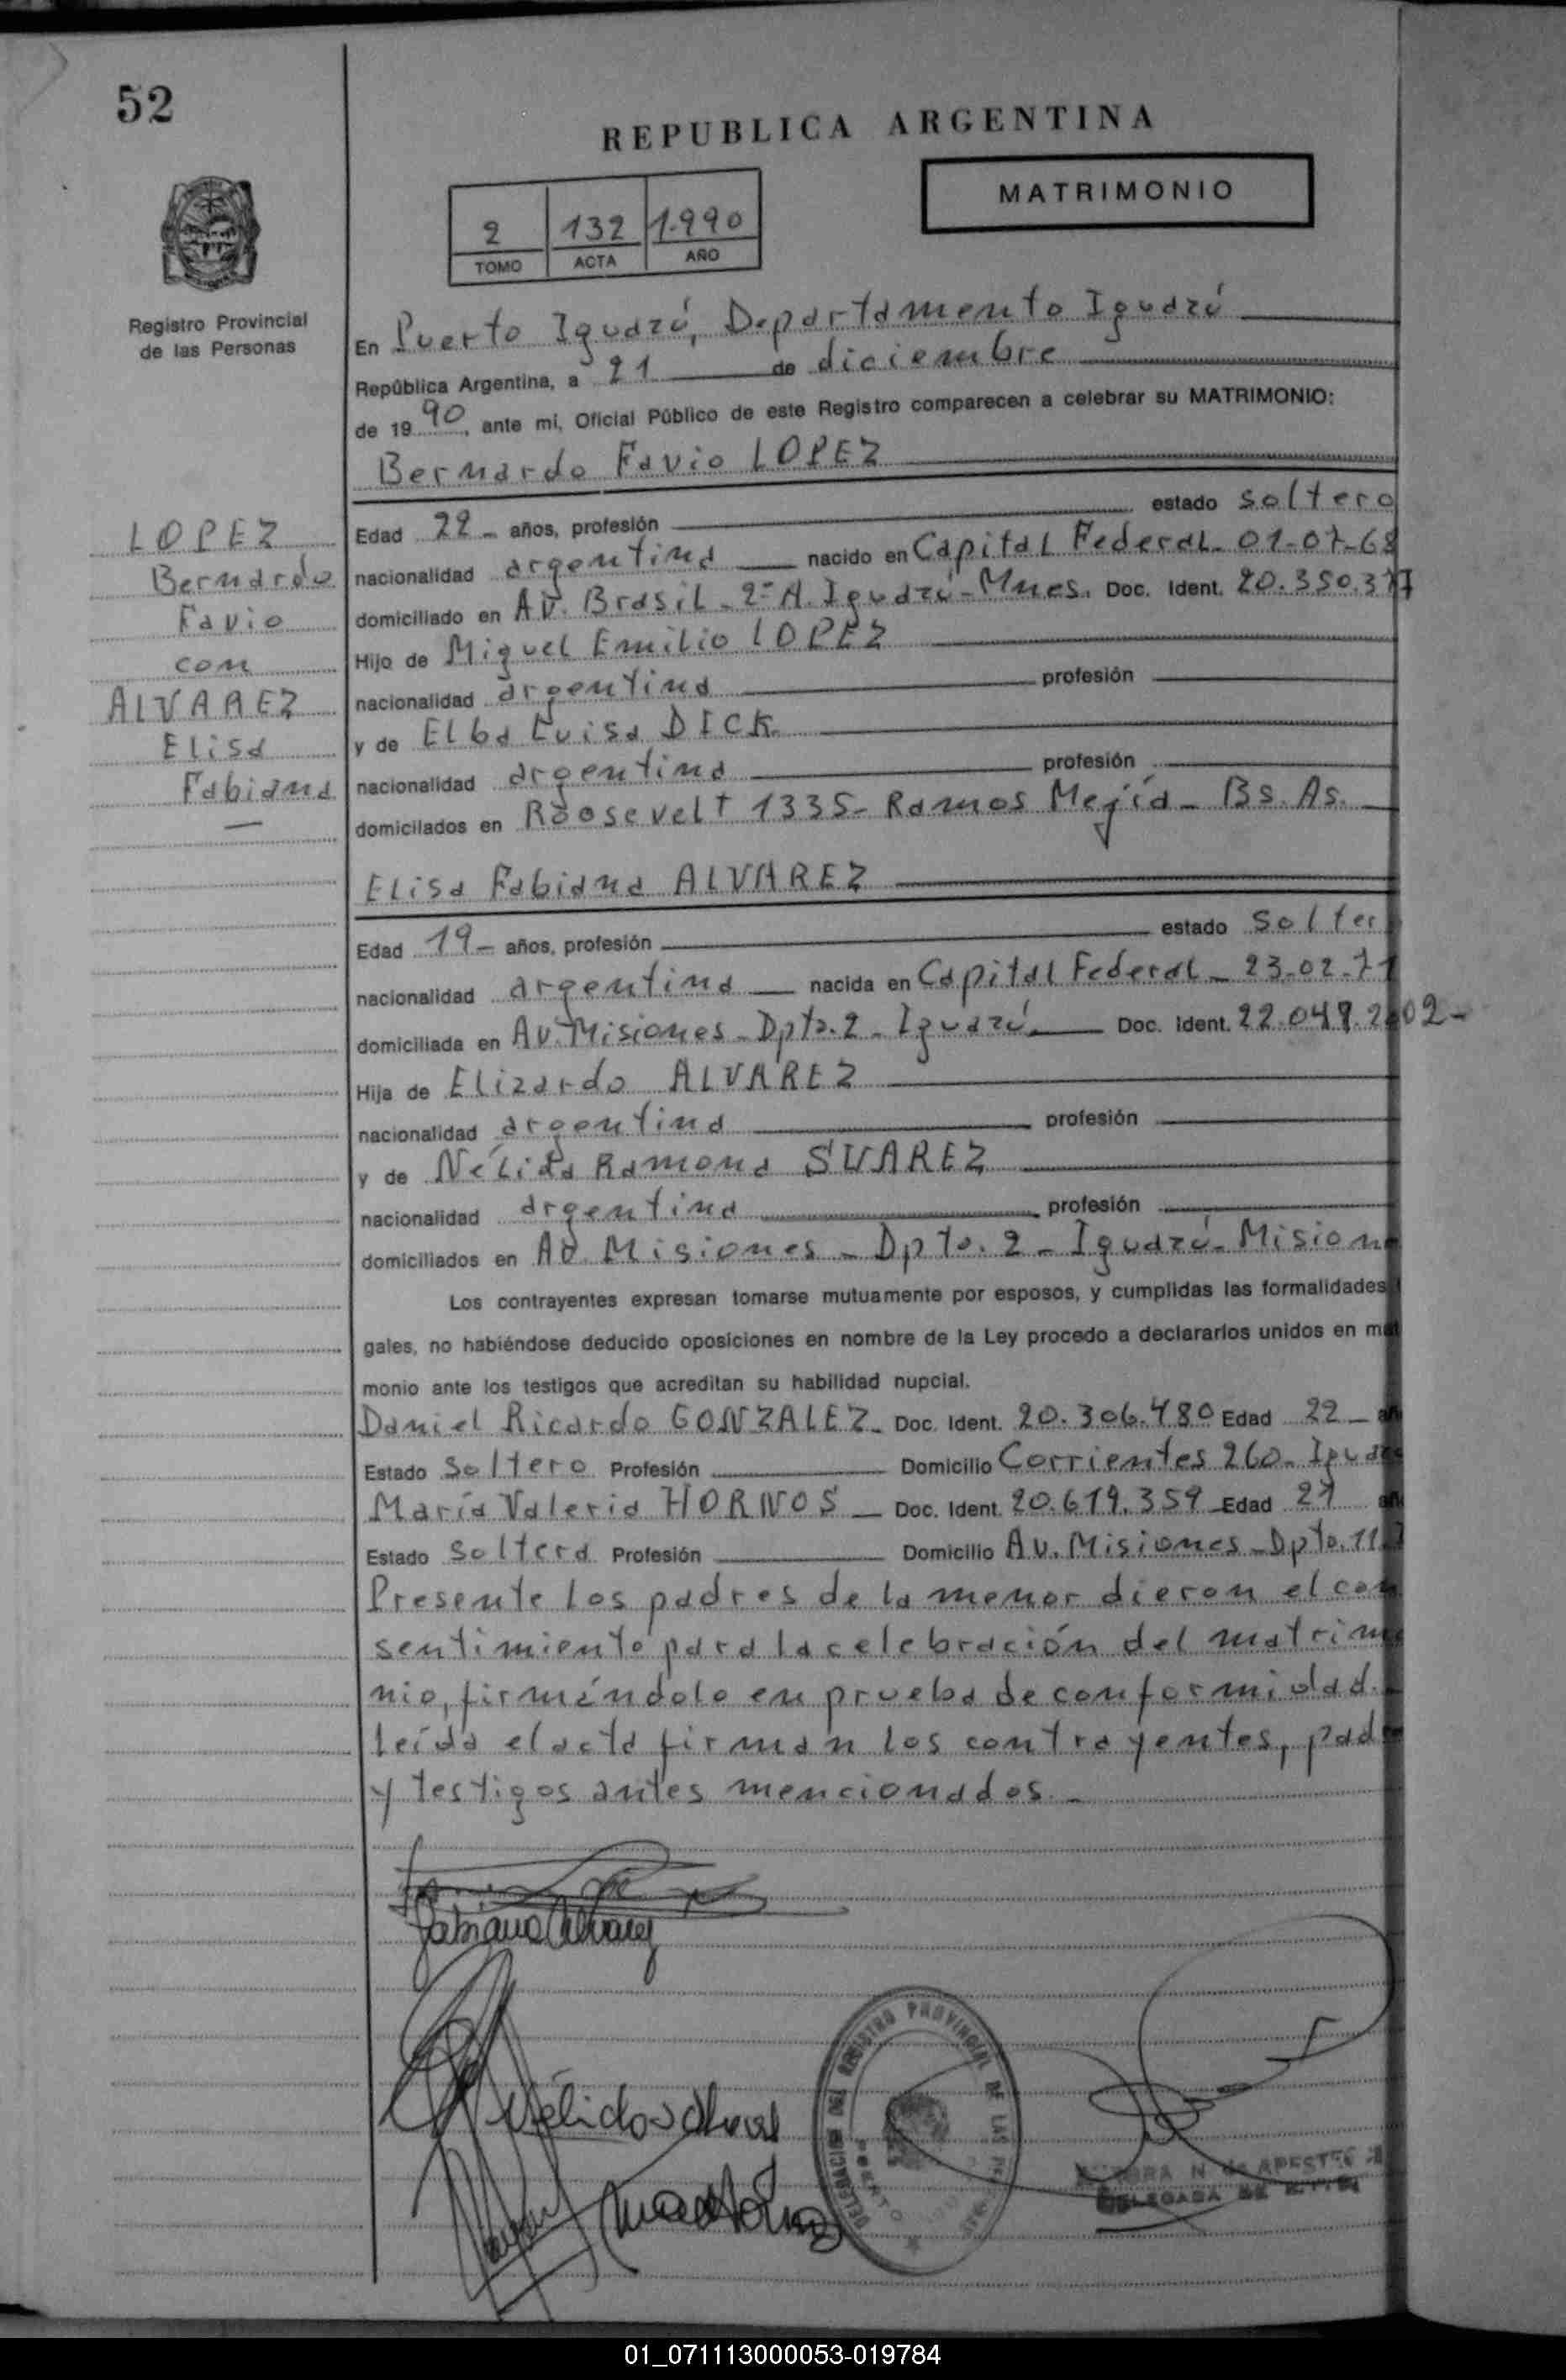 52
REPUBLICA ARGENTINA
MATRIMONIO
2 132 1.990
TOMO ACTA AÑO
Registro Provincial
de las Personas
En Puerto Iguazú, Departamento Iguazú
República Argentina, a 21 de diciembre
de 1990, ante mi, Oficial Público de este Registro comparecen a celebrar su MATRIMONIO:
Bernardo Favio LOPEZ
LOPEZ
Bernardo
Favio
con
ALVAREZ
Elisa
Fabiana
Edad 22 años, profesión estado soltero
nacionalidad argentina nacido en Capital Federal - 01-07-68
domiciliado en Av. Brasil - 2º A. Iguazú - Mnes. Doc. Ident. 20.350.377
Hijo de Miguel Emilio LOPEZ
nacionalidad argentina profesión
y de Elba Luisa DICK
nacionalidad argentina profesión
domicilados en Roosevelt 1335 - Ramos Mejía - Bs. As.
Elisa Fabiana ALVAREZ
Edad 19 - años, profesión estado solter
nacionalidad argentina nacida en Capital Federal - 23-02-71
domiciliada en Av. Misiones - Dpto. 2 - Iguazú Doc. Ident.
Hija de Elizardo ALVAREZ
nacionalidad argentina profesión
y de Nélida Ramona SUAREZ
nacionalidad argentina profesión
domiciliados en Av. Misiones - Dpto. 2 - Iguazú - Mision
Los contrayentes expresan tomarse mutuamente por esposos, y cumplidas las formalidades
gales, no habiéndose deducido oposiciones en nombre de la Ley procedo a declararlos unidos en mat
monio ante los testigos que acreditan su habilidad nupcial.
Daniel Ricardo GONZALEZ - Doc. Ident. 20.306.480 Edad 22 -
Estado soltero Profesión Domicilio Corrientes 260 - Iguaz
María Valeria HORNOS - Doc. Ident. 20.619.359 Edad 21
Estado soltera Profesión Domicilio Av. Misiones - Dpto. 11
Presente los padres de la menor dieron el con
sentimiento para la celebración del matrimo
nio, firmándolo en prueba de conformidad.
Leída el acta firman los contrayentes, pad
y testigos antes mencionados. -
Fabiana Alvarez
DELEGACION DEL REGISTRO PROVINCIAL DE LAS
N. de APESTE
DELEGADA DE
01_071113000053-019784